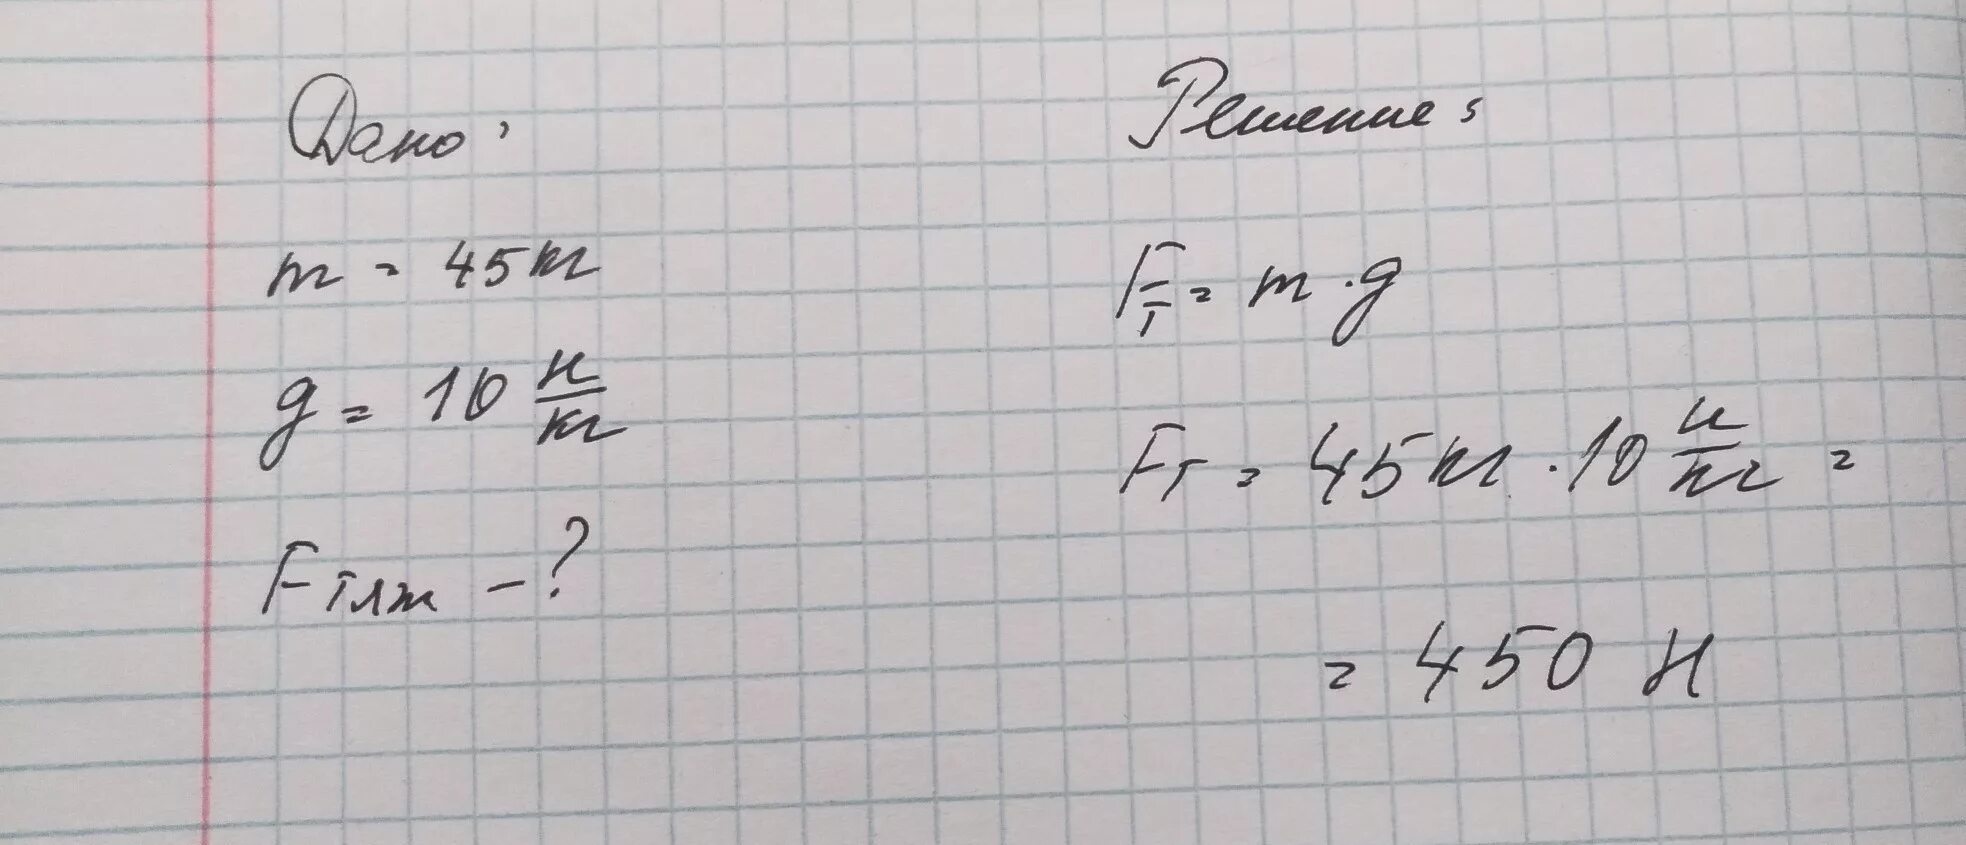 Дано:
m = 45 кг
g = 10 н/кг
Fтяж - ?
Решение:
Fт = m · g
Fт = 45 кг · 10 н/кг =
= 450 Н